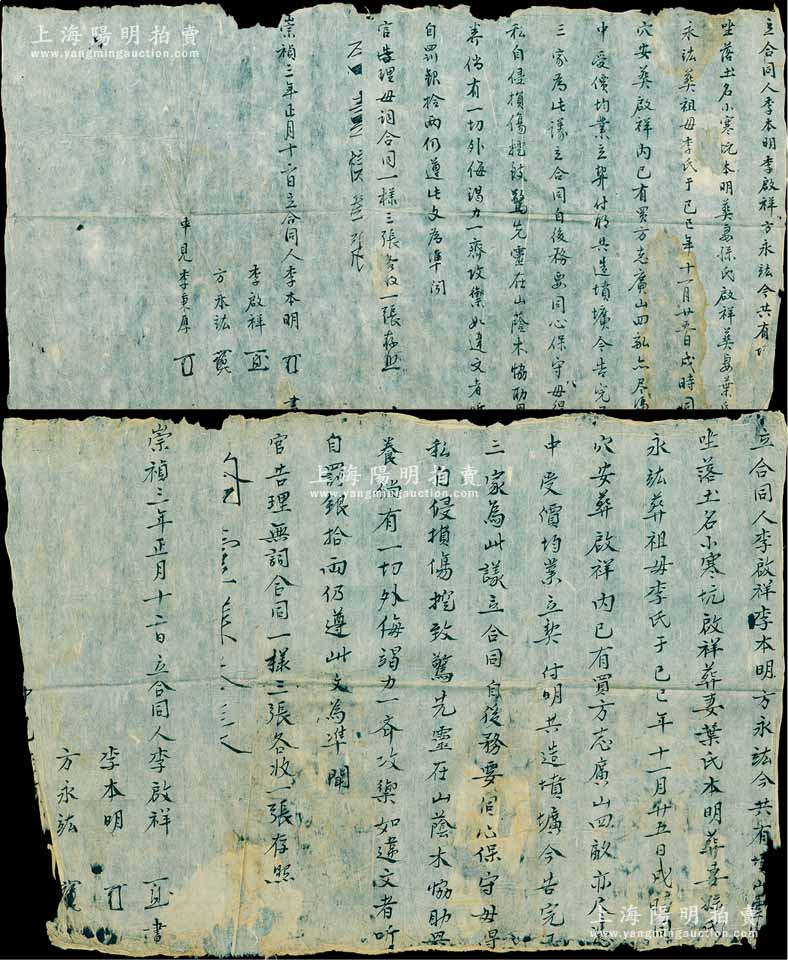 立合同人李本明李啟祥方永法今共有
坐落土名小寒坑本明葬妻孫氏啟祥葬妻葉氏
永法葬祖母李氏于己巳年十一月廿五日戌時同
穴安葬啟祥內已有買方志廣山四畝亦尽
中受價均業立契付明共造墳壙今告完
三家為此議立合同自後務要同心保守毋得
私自侵損傷挖致驚先灵在山蔭木協助
养倘有一切外侮竭力一齊攻禦如違文者听
自罰銀拾兩仍遵此文為準闻
官告理毋詞合同一樣三張各收一張存照
崇禎三年正月十二日立合同人李本明 書
李啟祥
方永法
中見李東厚
立合同人李啟祥李本明方永法今共有
坐落土名小寒坑啟祥葬妻葉氏本明葬妻孫氏
永法葬祖母李氏于己巳年十一月廿五日戌時同
穴安葬啟祥內已有買方志廣山四畝亦尽
中受價均業立契付明共造墳壙今告完
三家為此議立合同自後務要同心保守毋得
私自侵損傷挖致驚先靈在山蔭木協助
養倘有一切外侮竭力一齐攻禦如違文者听
自罰銀拾兩仍遵此文為準聞
官告理無詞合同一樣三張各收一張存照
崇禎三年正月十二日立合同人李啟祥 書
李本明
方永法
上海陽明拍賣
www.yangmingauction.com
上海陽明拍賣
www.yangmingauction.com
上海陽明拍賣
www.yangmingauction.com
上海陽明拍賣
www.yangmingauction.com